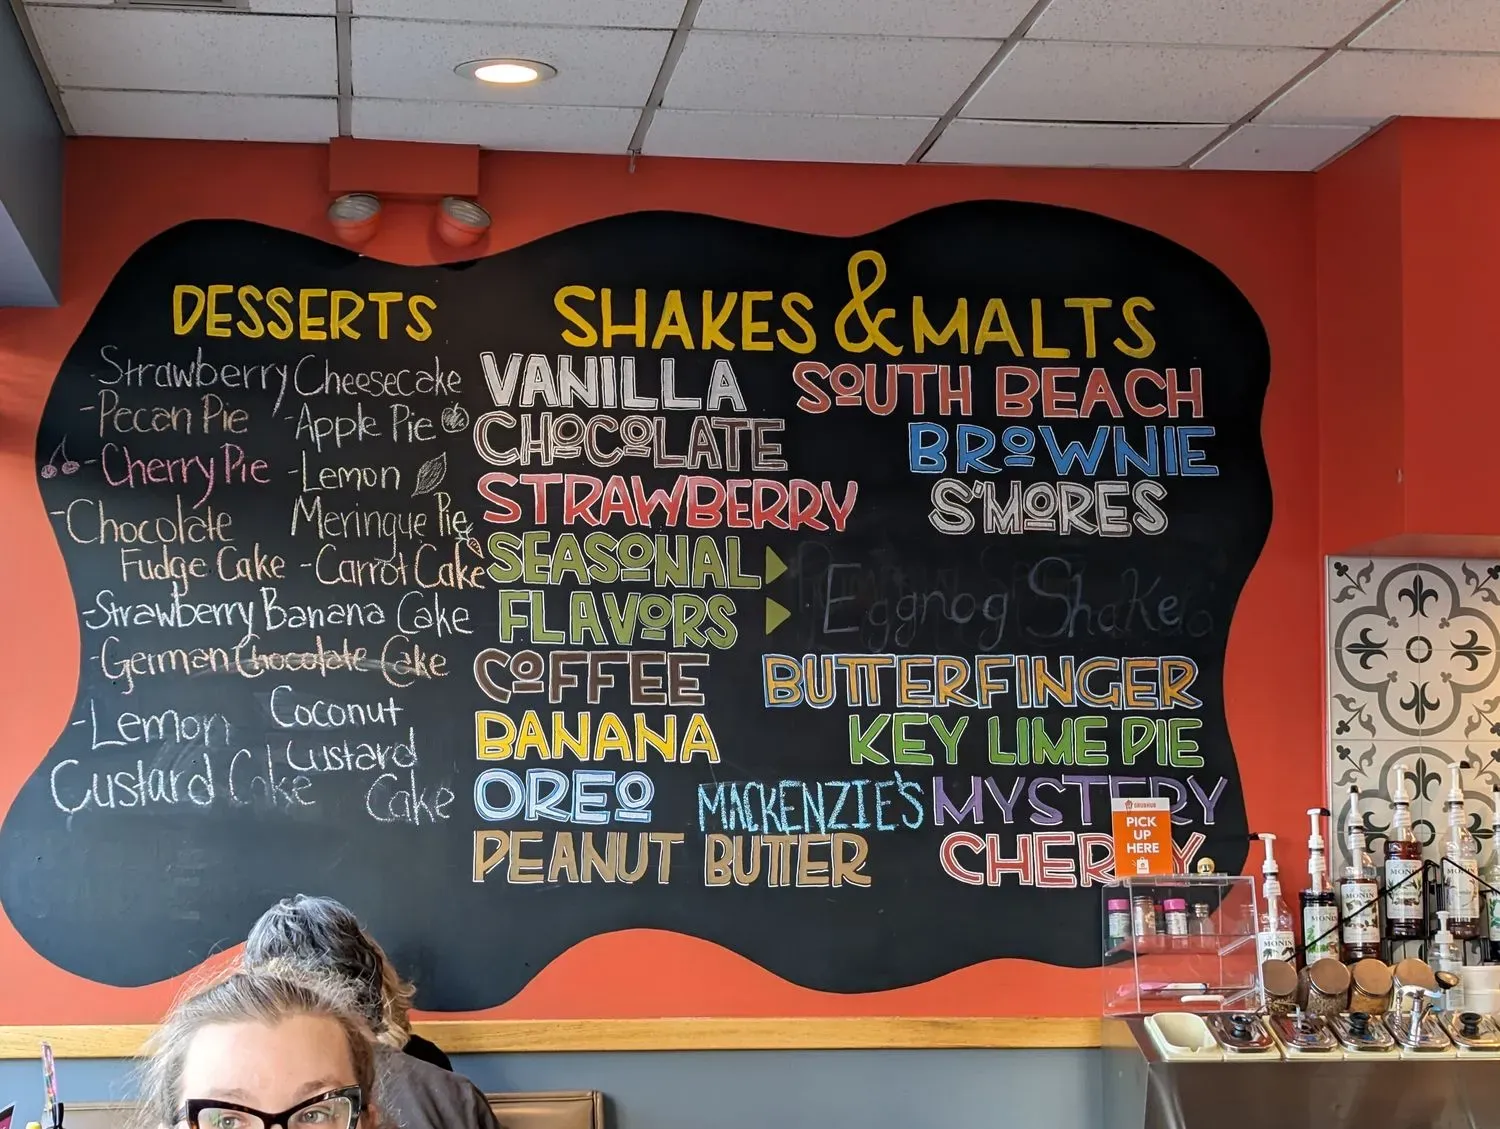 DESSERTS
Strawberry Cheesecake
-Pecan Pie
-Apple Pie
-Cherry Pie
-Lemon
Meringue Pie
-Chocolate
Fudge Cake
-Carrot Cake
-Strawberry Banana Cake
-German Chocolate Cake
-Lemon
Custard Cake
Coconut
Custard
Cake
SHAKES & MALTS
VANILLA
CHOCOLATE
STRAWBERRY
SEASONAL
FLAVORS
Eggnog Shake
COFFEE
BANANA
OREO
PEANUT BUTTER
SOUTH BEACH
BROWNIE
S'MORES
BUTTERFINGER
KEY LIME PIE
MACKENZIE'S MYSTERY
CHERRY
GRUBHUB
PICK
UP
HERE
MONIN
MONIN
MONIN
MONIN
MONIN